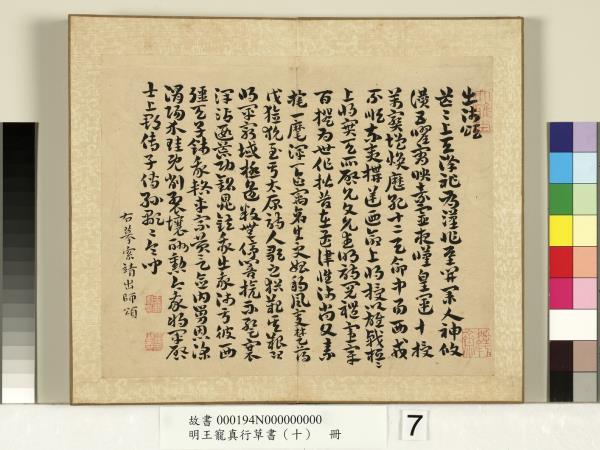 出師頌
茫々上天降祚為漢作基開業人神攸
贊五曜霄映素靈夜歎皇運來授
萬寶增煥歷紀十二天命中易西戎
不順東夷構逆乃命上將授以雄戟桓々
上將實天所啟允文允武明詩悅禮憲章
百揆為世作楷昔在孟津惟師尚父素
旄一麾渾一區寓蒼生更始朔風變楚薄
伐獫狁至于太原詩人歌之猶歎其艱況我
將軍窮域極邊鼓無停響旗不蹔褰
澤霑遐荒功銘鼎鉉我出我師于彼西
疆天子餞我路車乘黃言念伯舅恩深
渭陽介珪既削裂壤酬勳今我將軍啟
土上郡傳子傳孫顯々令問
右摹索靖出師頌
故書 000194N000000000
明王寵真行草書（十） 冊
7